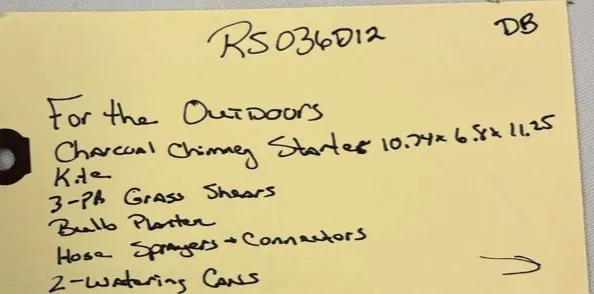 RS036D12 DB
For the OUTDOORS
Charcoal Chimney Starter 10.74 x 6.8 x 11.25
Kite
3-PR Grass Shears
Bulb Planter
Hose Sprayers + Connectors
2-Watering Cans